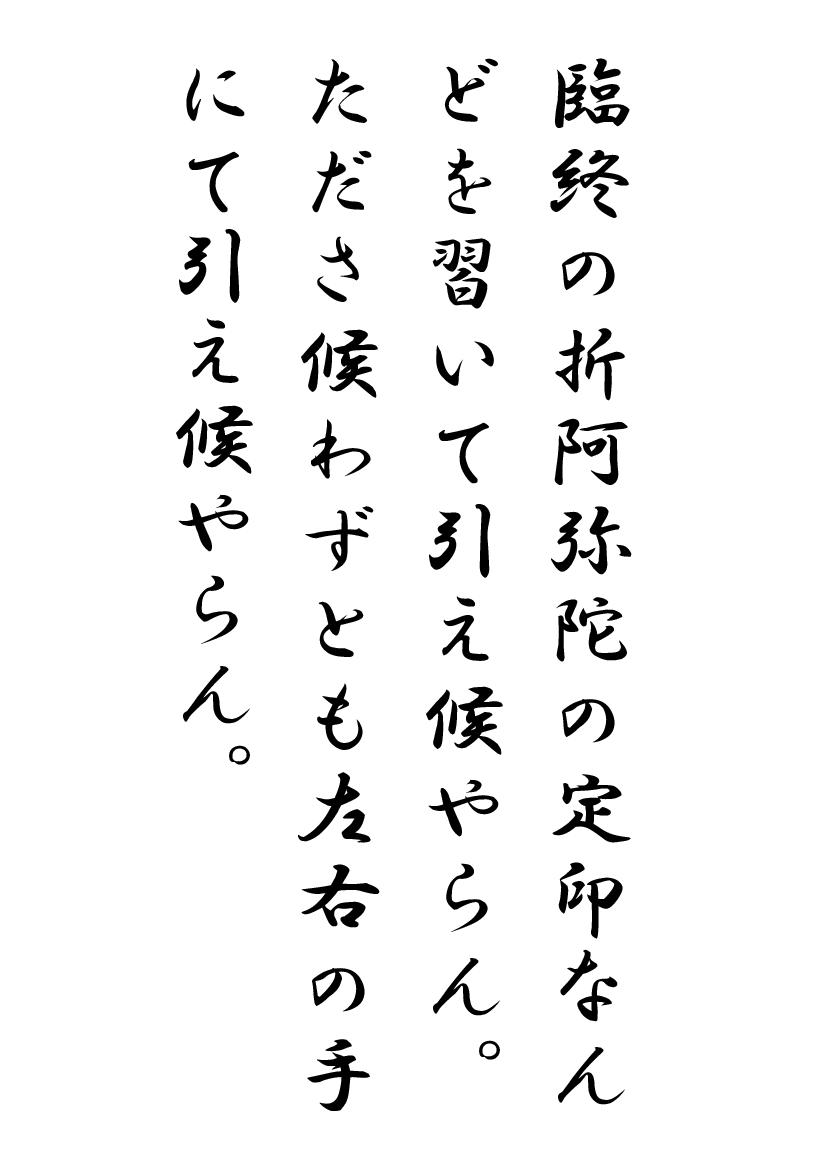 臨終の折阿弥陀の定印なん
どを習いて引え候やらん。
たださ候わずとも左右の手
にて引え候やらん。